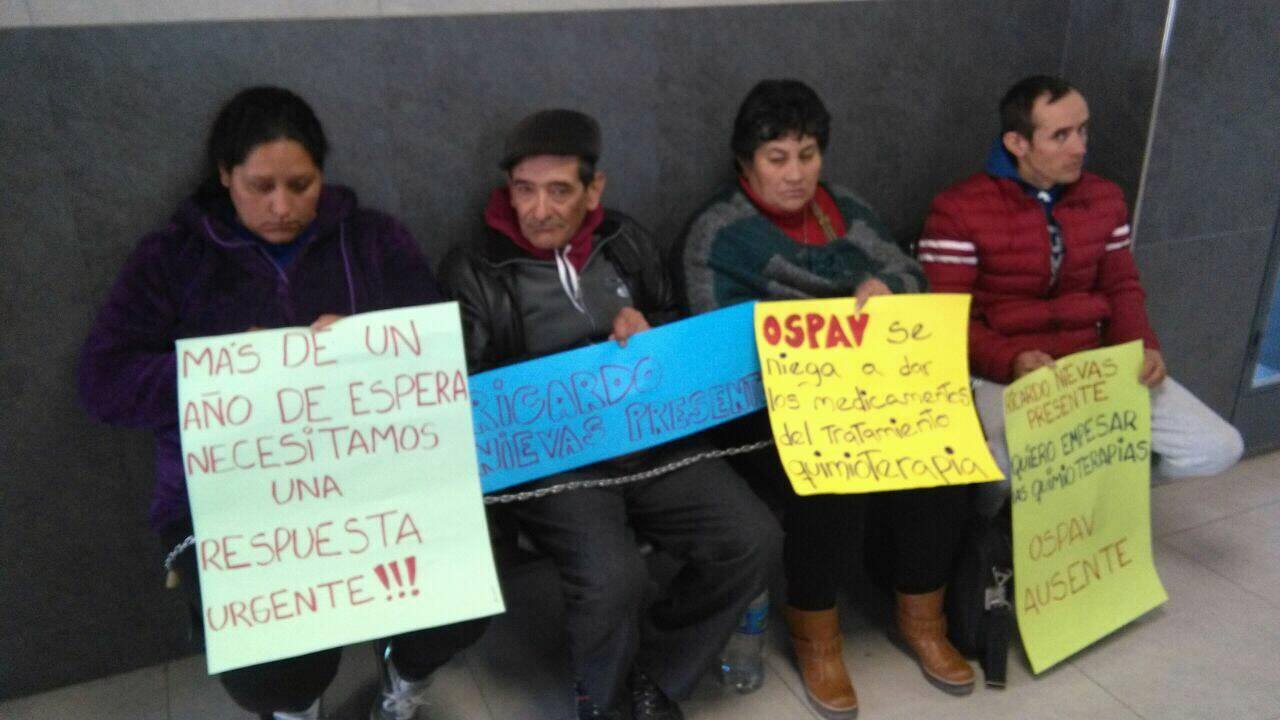 MÁS DE UN
AÑO DE ESPERA
NECESITAMOS
UNA
RESPUESTA
URGENTE!!!
RICARDO
NIEVAS PRESENTE
OSPAV se
niega a dar
los medicamentos
del Tratamiento
quimioTerapia
RICARDO NIEVAS
PRESENTE
QUIERO EMPESAR
las QUIMIOTERAPIAS
OSPAV
AUSENTE